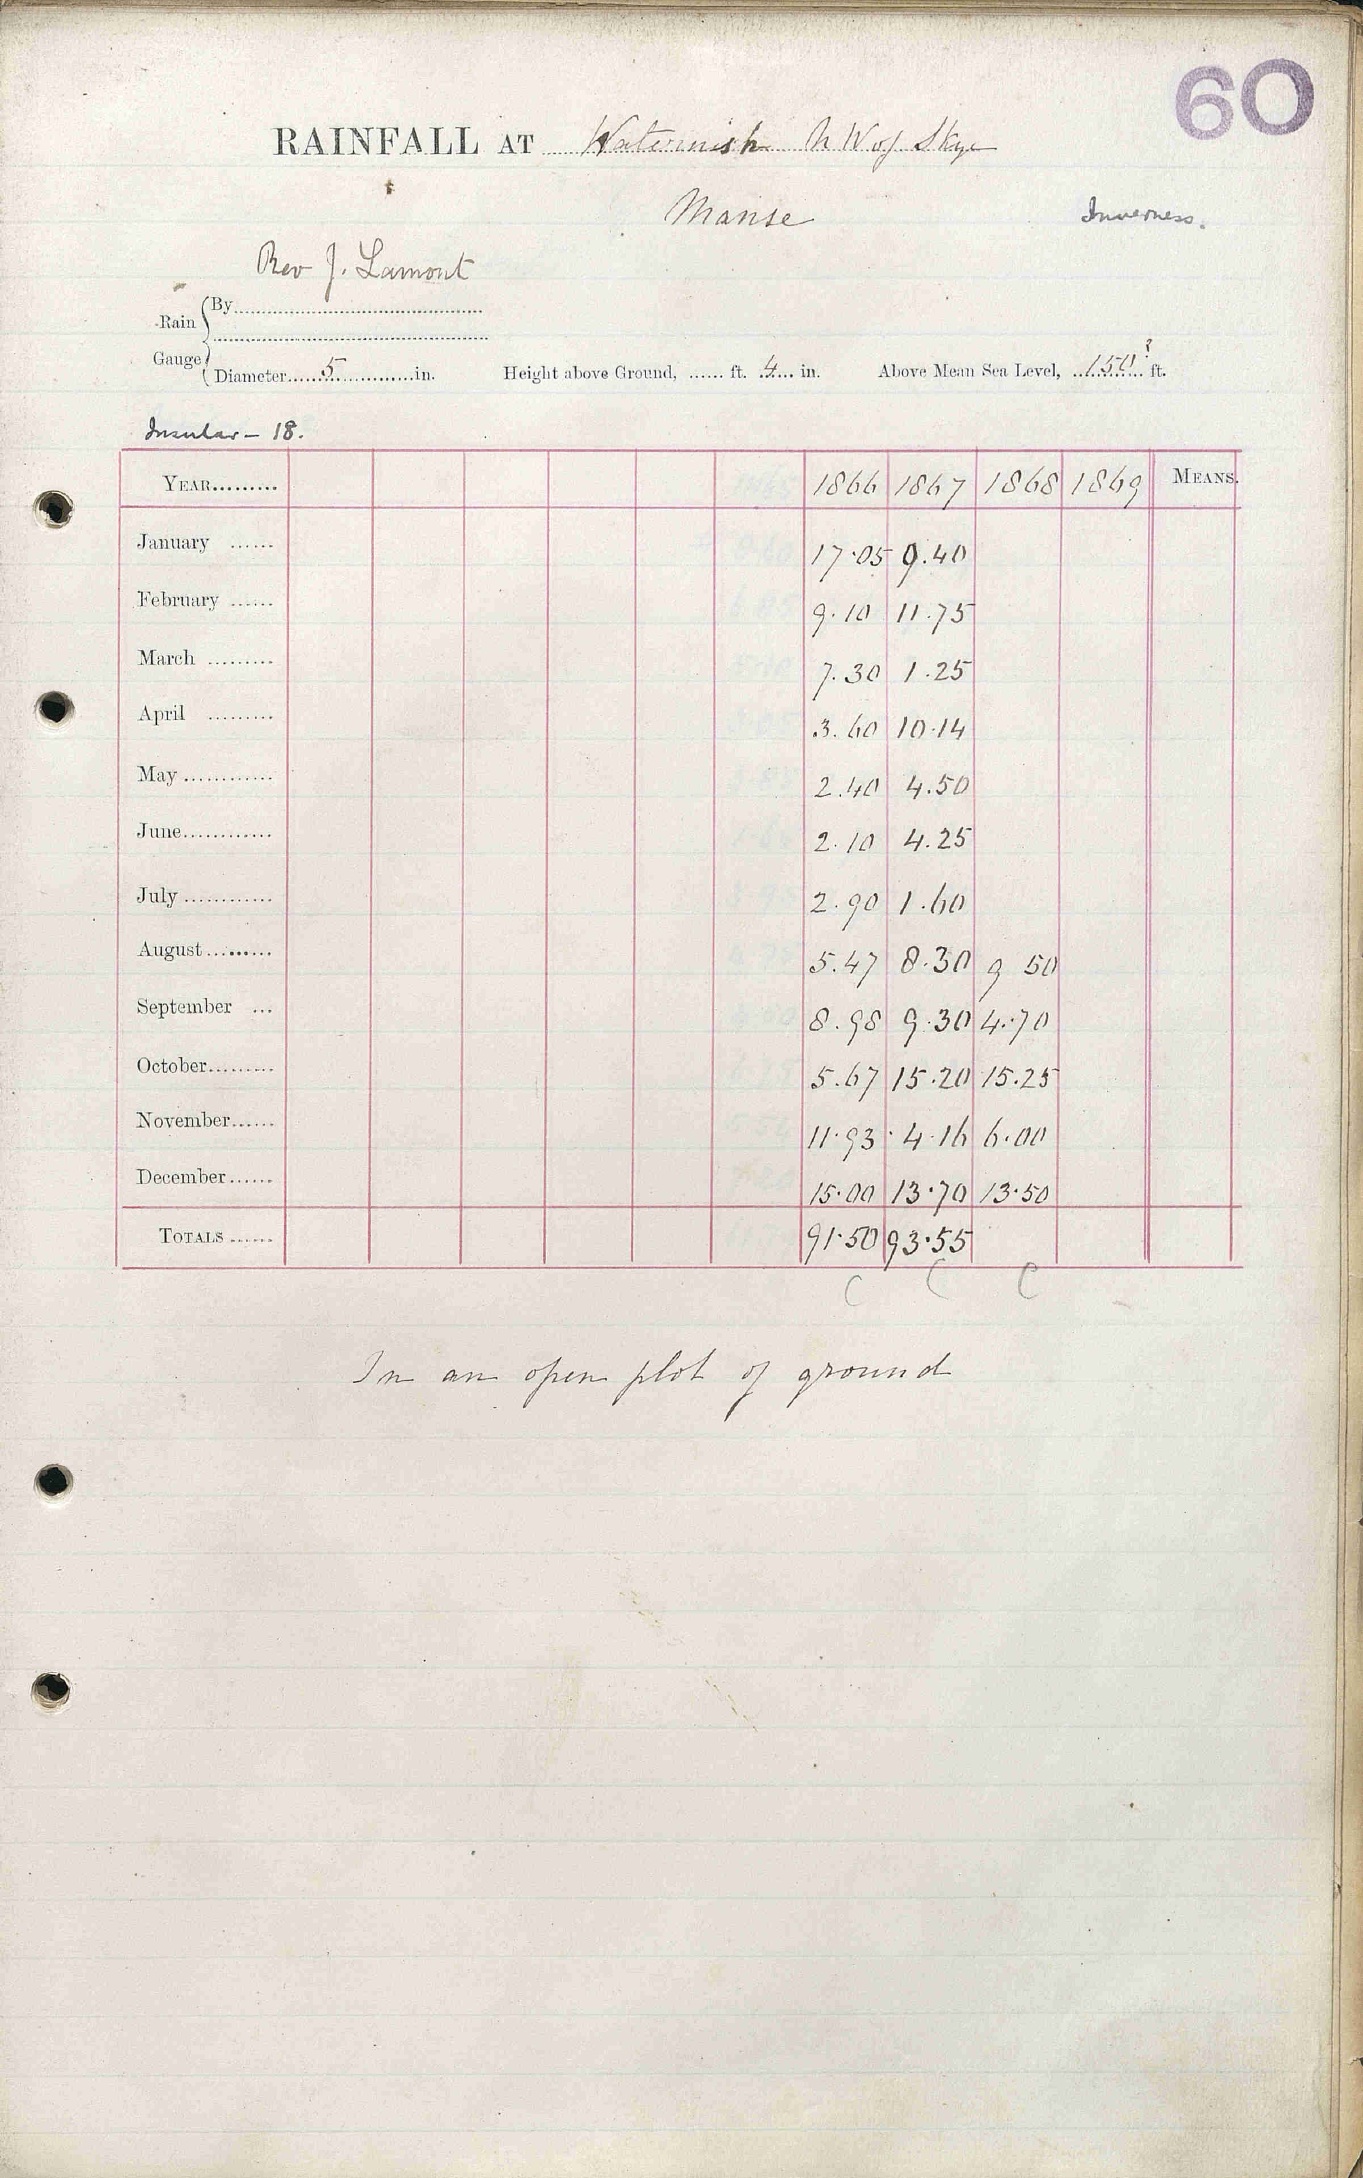 60
RAINFALL AT Waternish NW of Skye
Manse Inverness.
Rev J. Lamont
Rain Gauge By
Diameter 5 in. Height above Ground, ft. 4 in. Above Mean Sea Level, 150? ft.
Insular - 18.
YEAR 1866 1867 1868 1869 MEANS.
January 17.05 9.40
February 9.10 11.75
March 7.30 1.25
April 3.60 10.14
May 2.40 4.50
June 2.10 4.25
July 2.90 1.60
August 5.47 8.30 9 50
September 8.98 9.30 4.70
October 5.67 15.20 15.25
November 11.93 4.16 6.00
December 15.00 13.70 13.50
TOTALS 91.50 93.55
C C C
In an open plot of ground